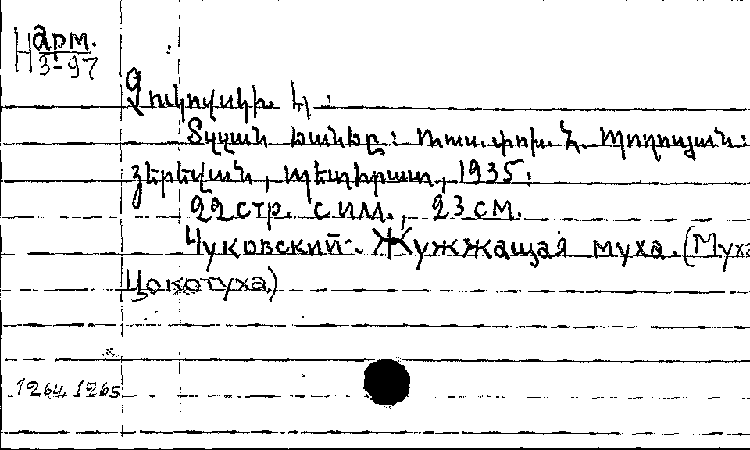 Н Арм.
3-97
Չուկովսկի. Կ:
Տզզան ճանճը: Ռուս. փոխ. Հ. Պողոսյան:
Յերեվան, պետհրատ, 1935:
22 стр. с илл., 23 см.
Чуковский. Жужжащая муха. (Муха
Цокотуха)
1264, 1265